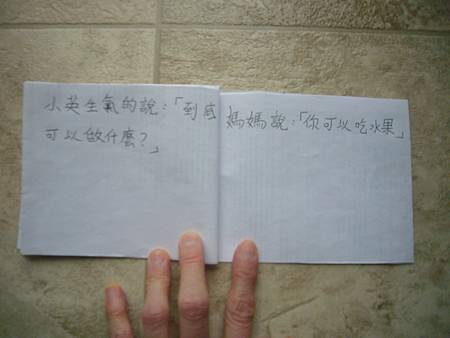 小英生氣的說:「到底
可以做什麼?」
媽媽說:「你可以吃水果」